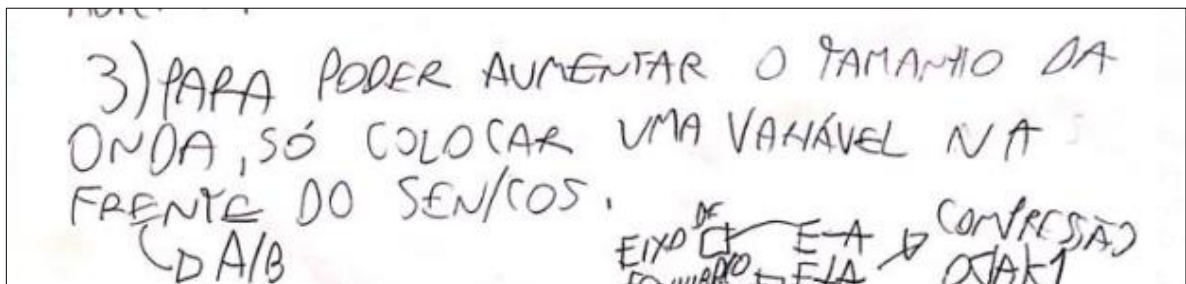 3) PARA PODER AUMENTAR O TAMANHO DA
ONDA, SÓ COLOCAR UMA VARIÁVEL NA
FRENTE DO SEN/COS.
A/B
EIXO DE E-A COMPRESSÃO
E+A 0<A<1